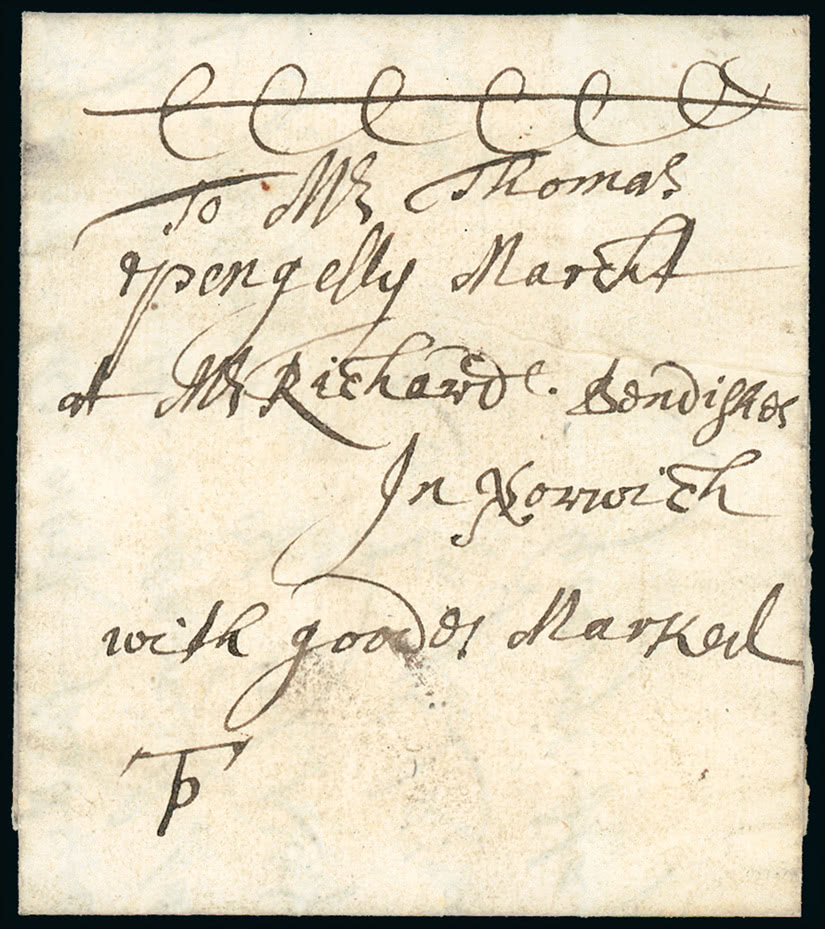 To Mr Thomas
pengelly Marcht
at Mr Richard Bendishes
In Norwich
with goodes Marked
TP